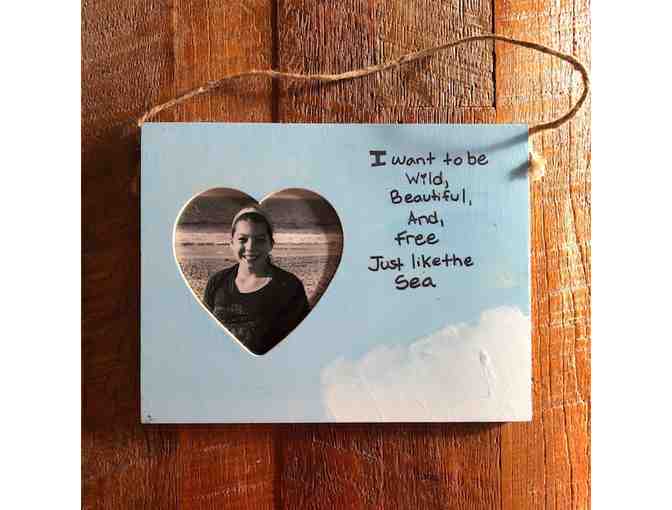 I want to be
Wild,
Beautiful,
And,
Free
Just like the
Sea